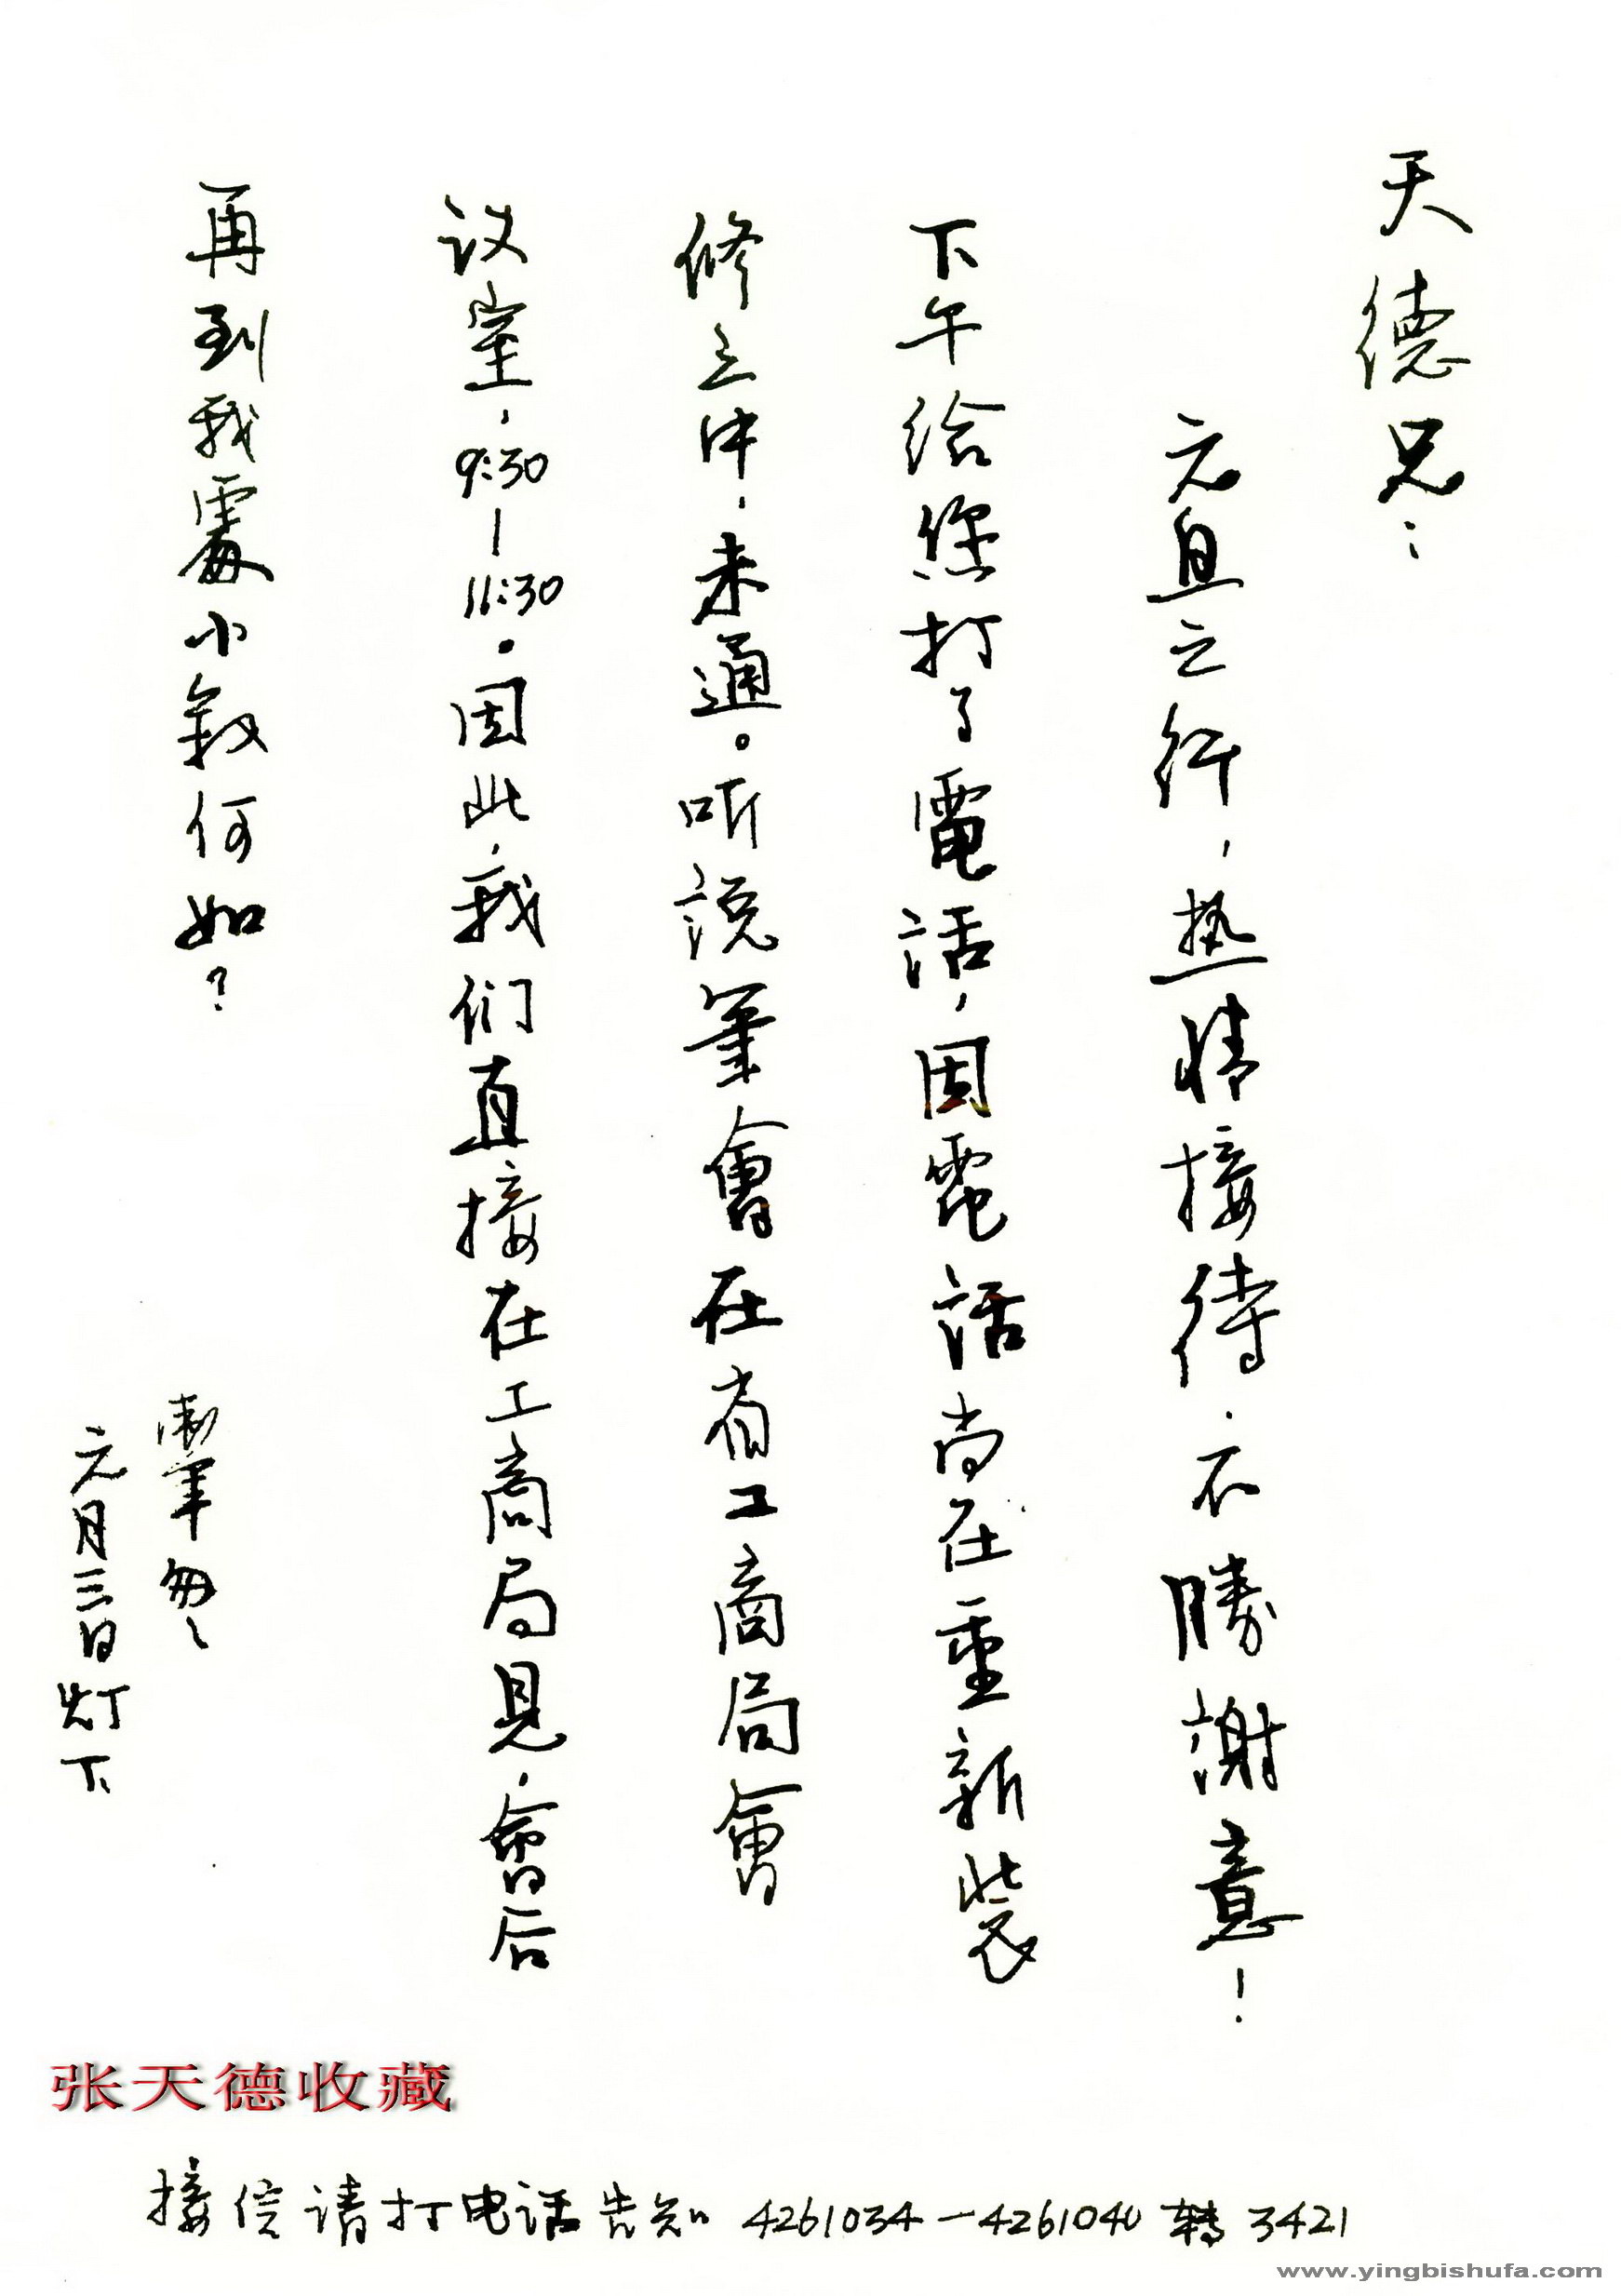 天德兄：
元旦之行，热情接待，不勝謝意！
下午给您打了電话，因電话尚在重新装
修之中，未通。听说筆會在省工商局會
议室，9:30—11:30。因此，我们直接在工商局見，會后
再到我處小敘何如？
肅筆匆匆
元月三日灯下
张天德收藏
接信请打电话告知 4261034—4261040 轉 3421
www.yingbishufa.com